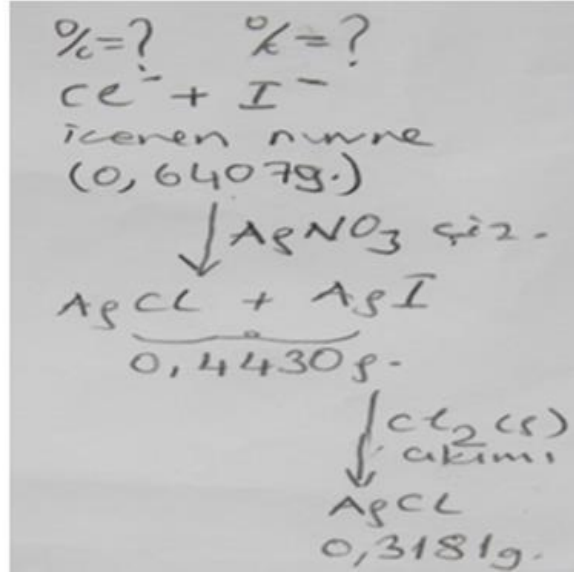 %=? %=?
Cl⁻ + I⁻
içeren numune
(0,64079g.)
↓ AgNO₃ çöz.
AgCl + AgI
0,4430g.
↓ Cl₂(g)
akımı
AgCl
0,3181g.